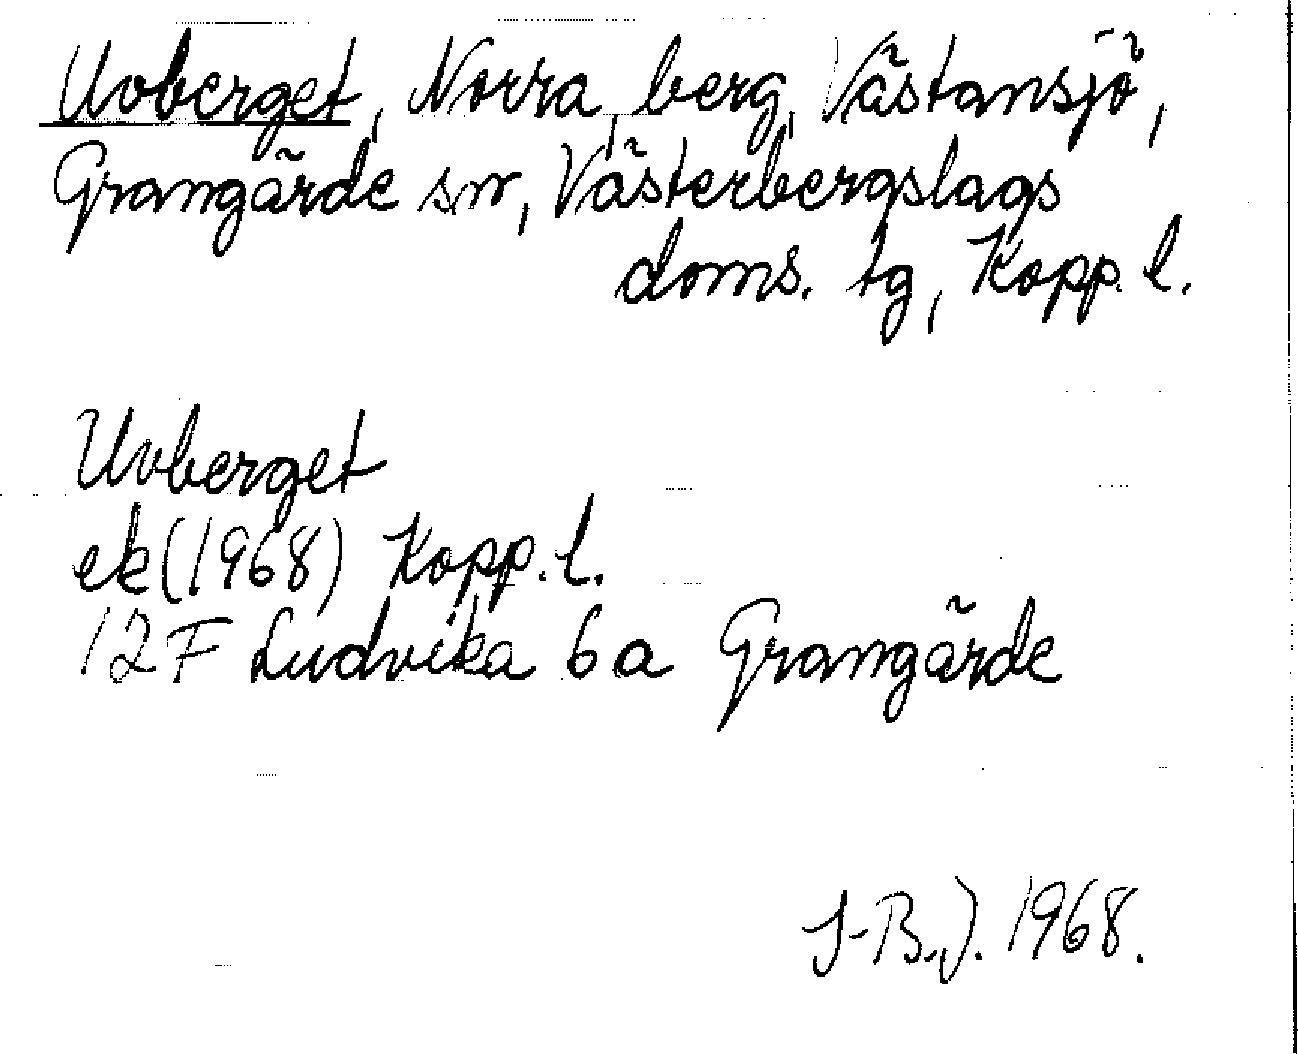 Uvberget, Norra, berg, Västansjö,
Grangärde sn, Västerbergslags
doms. tg, Kopp. l.
Uvberget
ek (1968) Kopp. l.
12F Ludvika 6a Grangärde
J-B.J. 1968.